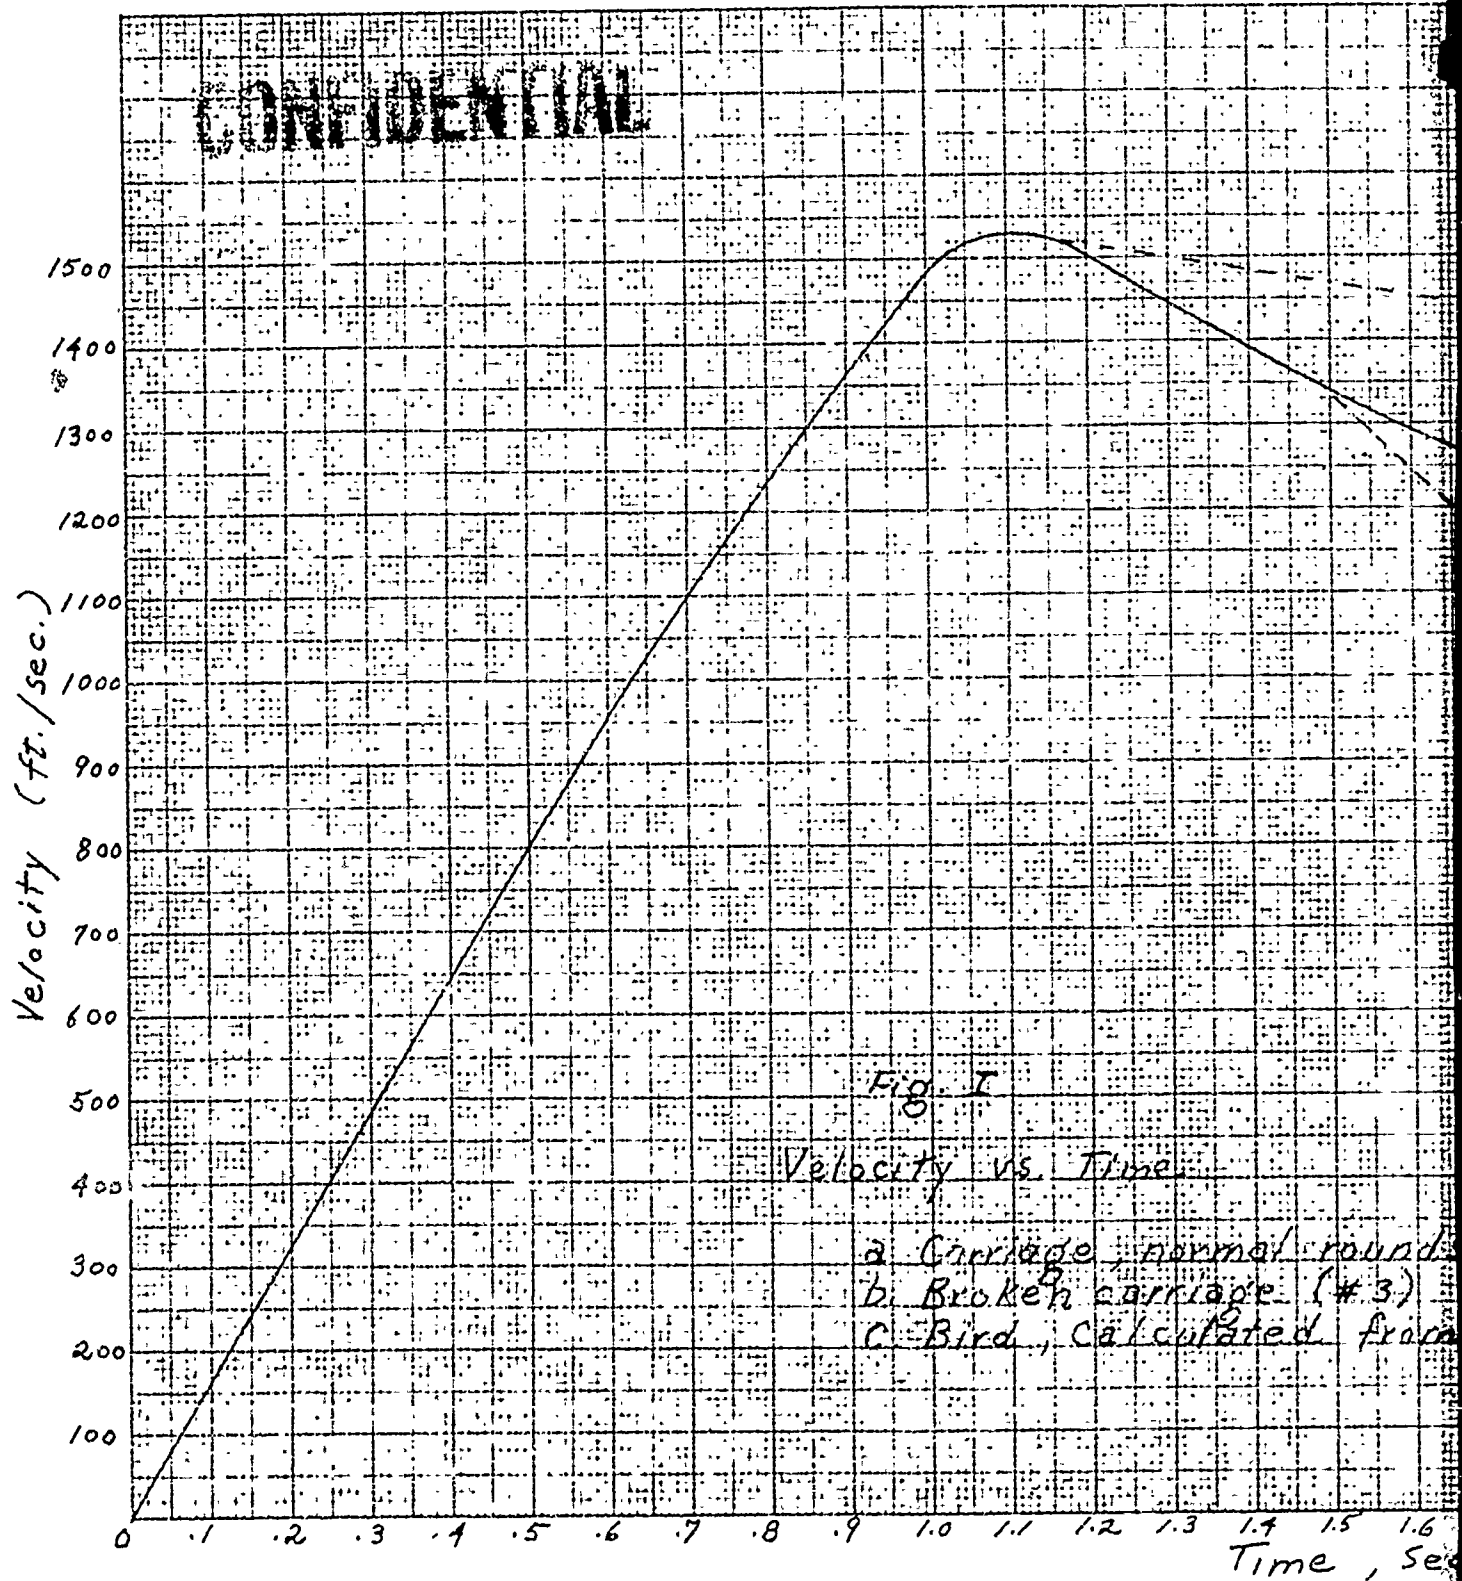 CONFIDENTIAL
1500
1400
1300
1200
1100
1000
900
800
700
600
500
400
300
200
100
Velocity (ft./sec.)
Fig. I
Velocity vs. Time
a Carriage, normal round
b. Broken carriage (#3)
c. Bird, Calculated from
0 .1 .2 .3 .4 .5 .6 .7 .8 .9 1.0 1.1 1.2 1.3 1.4 1.5 1.6
Time, Sec